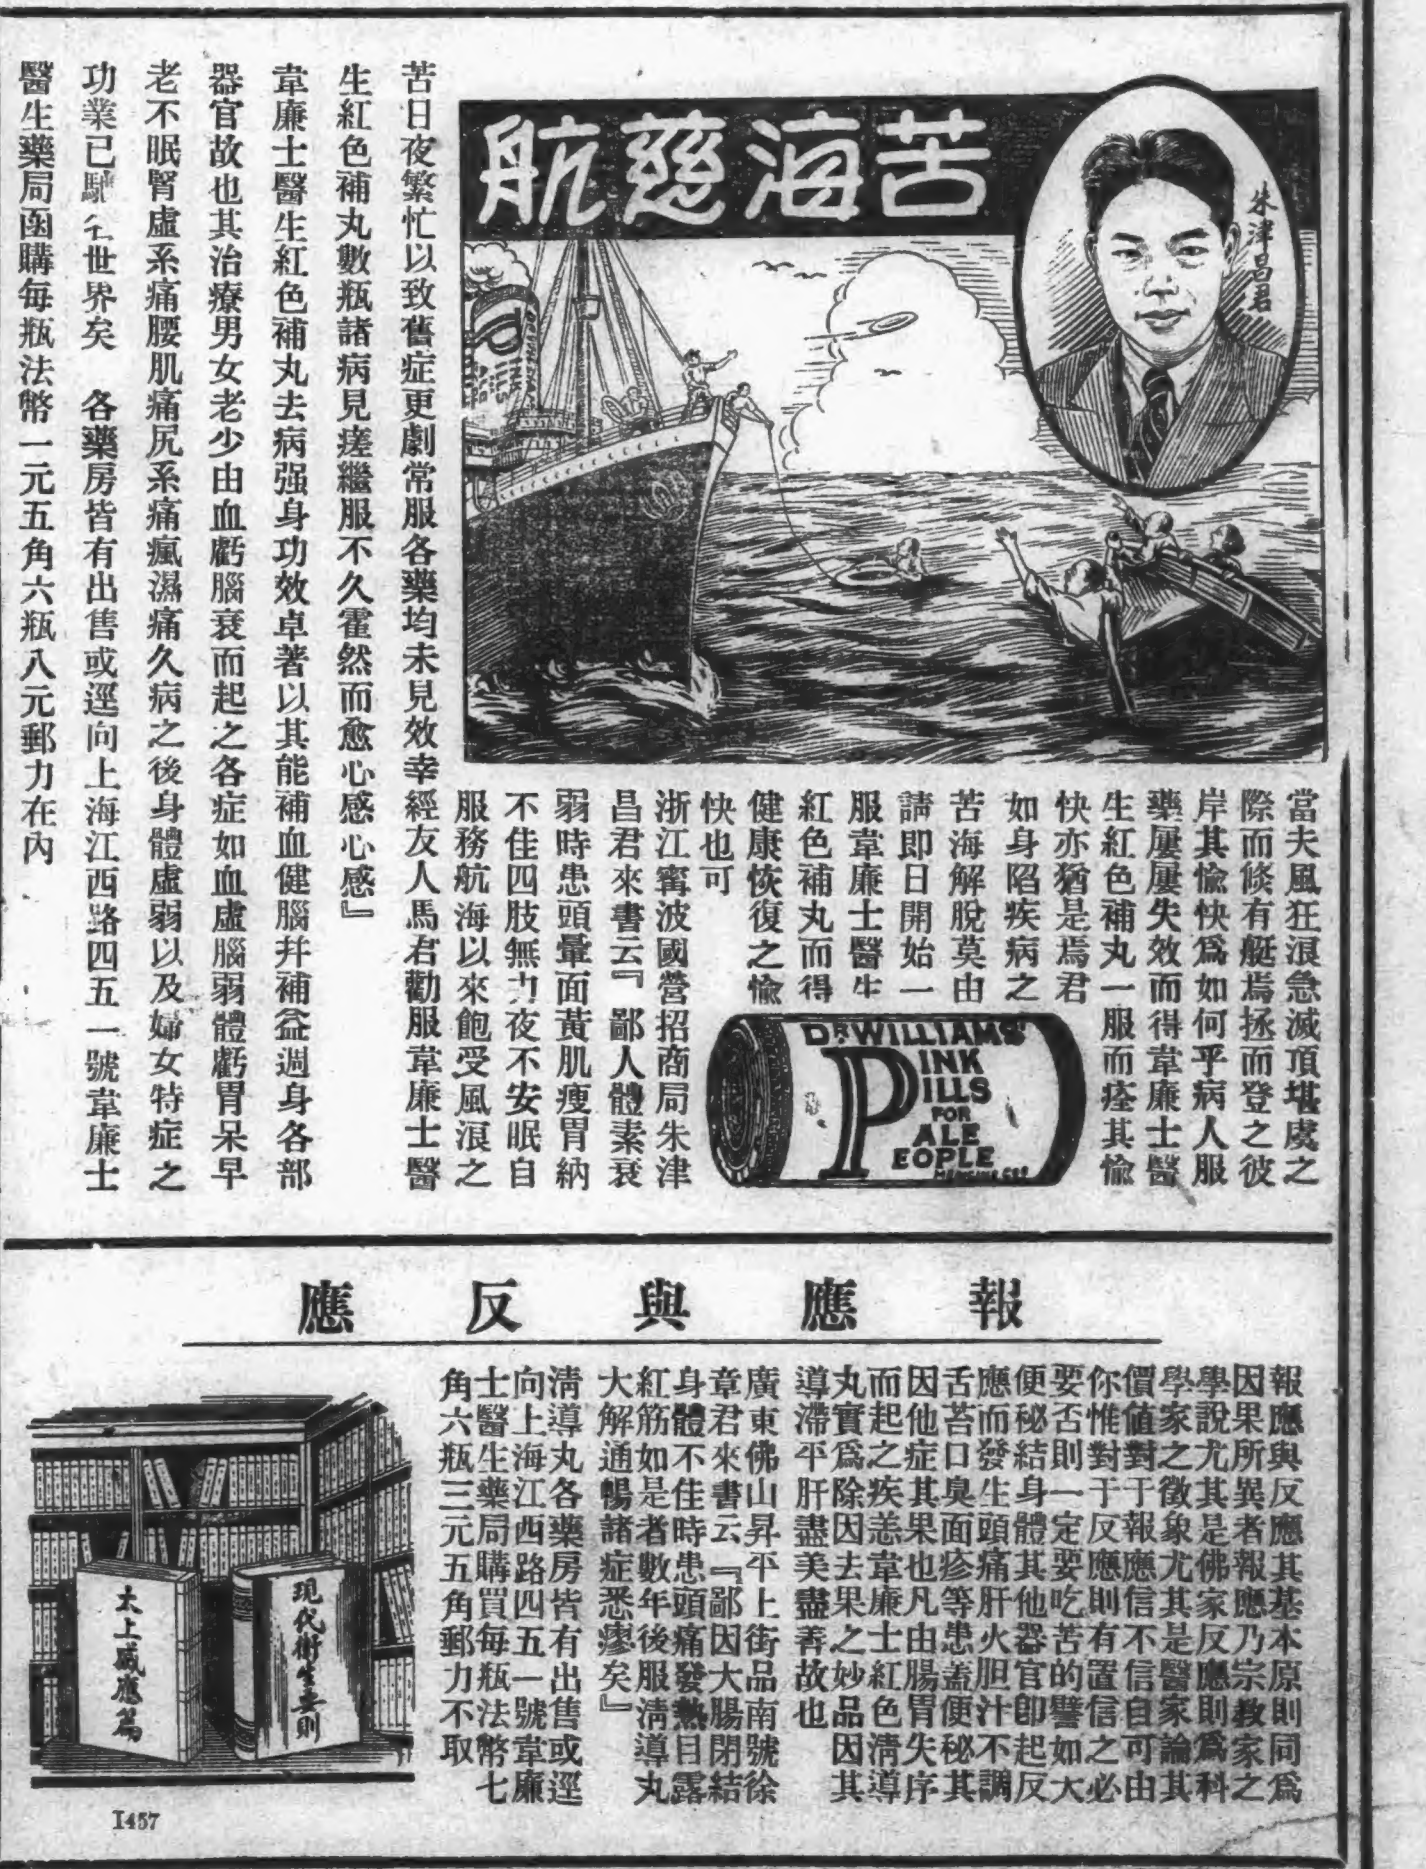 苦海慈航
朱津昌君
當夫風狂浪急滅頂堪虞之
際而倏有艇焉拯而登之彼
岸其愉快爲如何乎病人服
藥屢屢失效而得韋廉士醫
生紅色補丸一服而痊其愉
快亦猶是焉君
如身陷疾病之
苦海解脫莫由
請即日開始一
服韋廉士醫生
紅色補丸而得
健康恢復之愉
快也可
DR WILLIAMS'
PINK
PILLS
FOR
PALE
PEOPLE
浙江甯波國營招商局朱津
昌君來書云『鄙人體素衰
弱時患頭暈面黃肌瘦胃納
不佳四肢無力夜不安眠自
服務航海以來飽受風浪之
苦日夜繁忙以致舊症更劇常服各藥均未見效幸經友人馬君勸服韋廉士醫
生紅色補丸數瓶諸病見瘥繼服不久霍然而愈心感心感』
韋廉士醫生紅色補丸去病强身功效卓著以其能補血健腦幷補益週身各部
器官故也其治療男女老少由血虧腦衰而起之各症如血虛腦弱體虧胃呆早
老不眠腎虛系痛腰肌痛尻系痛瘋濕痛久病之後身體虛弱以及婦女特症之
功業已馳名世界矣　各藥房皆有出售或逕向上海江西路四五一號韋廉士
醫生藥局函購每瓶法幣一元五角六瓶八元郵力在內
報應與反應
報應與反應其基本原則同爲
因果所異者報應乃宗教家之
學說尤其是佛家反應則爲科
學家之徵象尤其是醫家論其
價值對于報應信不信自可由
你惟對于反應則有置信之必
要否則一定要吃苦的譬如大
便秘結身體其他器官即起反
應而發生頭痛肝火胆汁不調
舌苔口臭面疹等患蓋便秘其
因他症其果也凡由腸胃失序
而起之疾恙韋廉士紅色清導
丸實爲除因去果之妙品因其
導滯平肝盡美盡善故也
廣東佛山昇平上街品南號徐
章君來書云『鄙因大腸閉結
身體不佳時患頭痛發熱目露
紅筋如是者數年後服清導丸
大解通暢諸症悉瘳矣』
清導丸各藥房皆有出售或逕
向上海江西路四五一號韋廉
士醫生藥局購買每瓶法幣七
角六瓶三元五角郵力不取
現代衛生要則
太上感應篇
I457